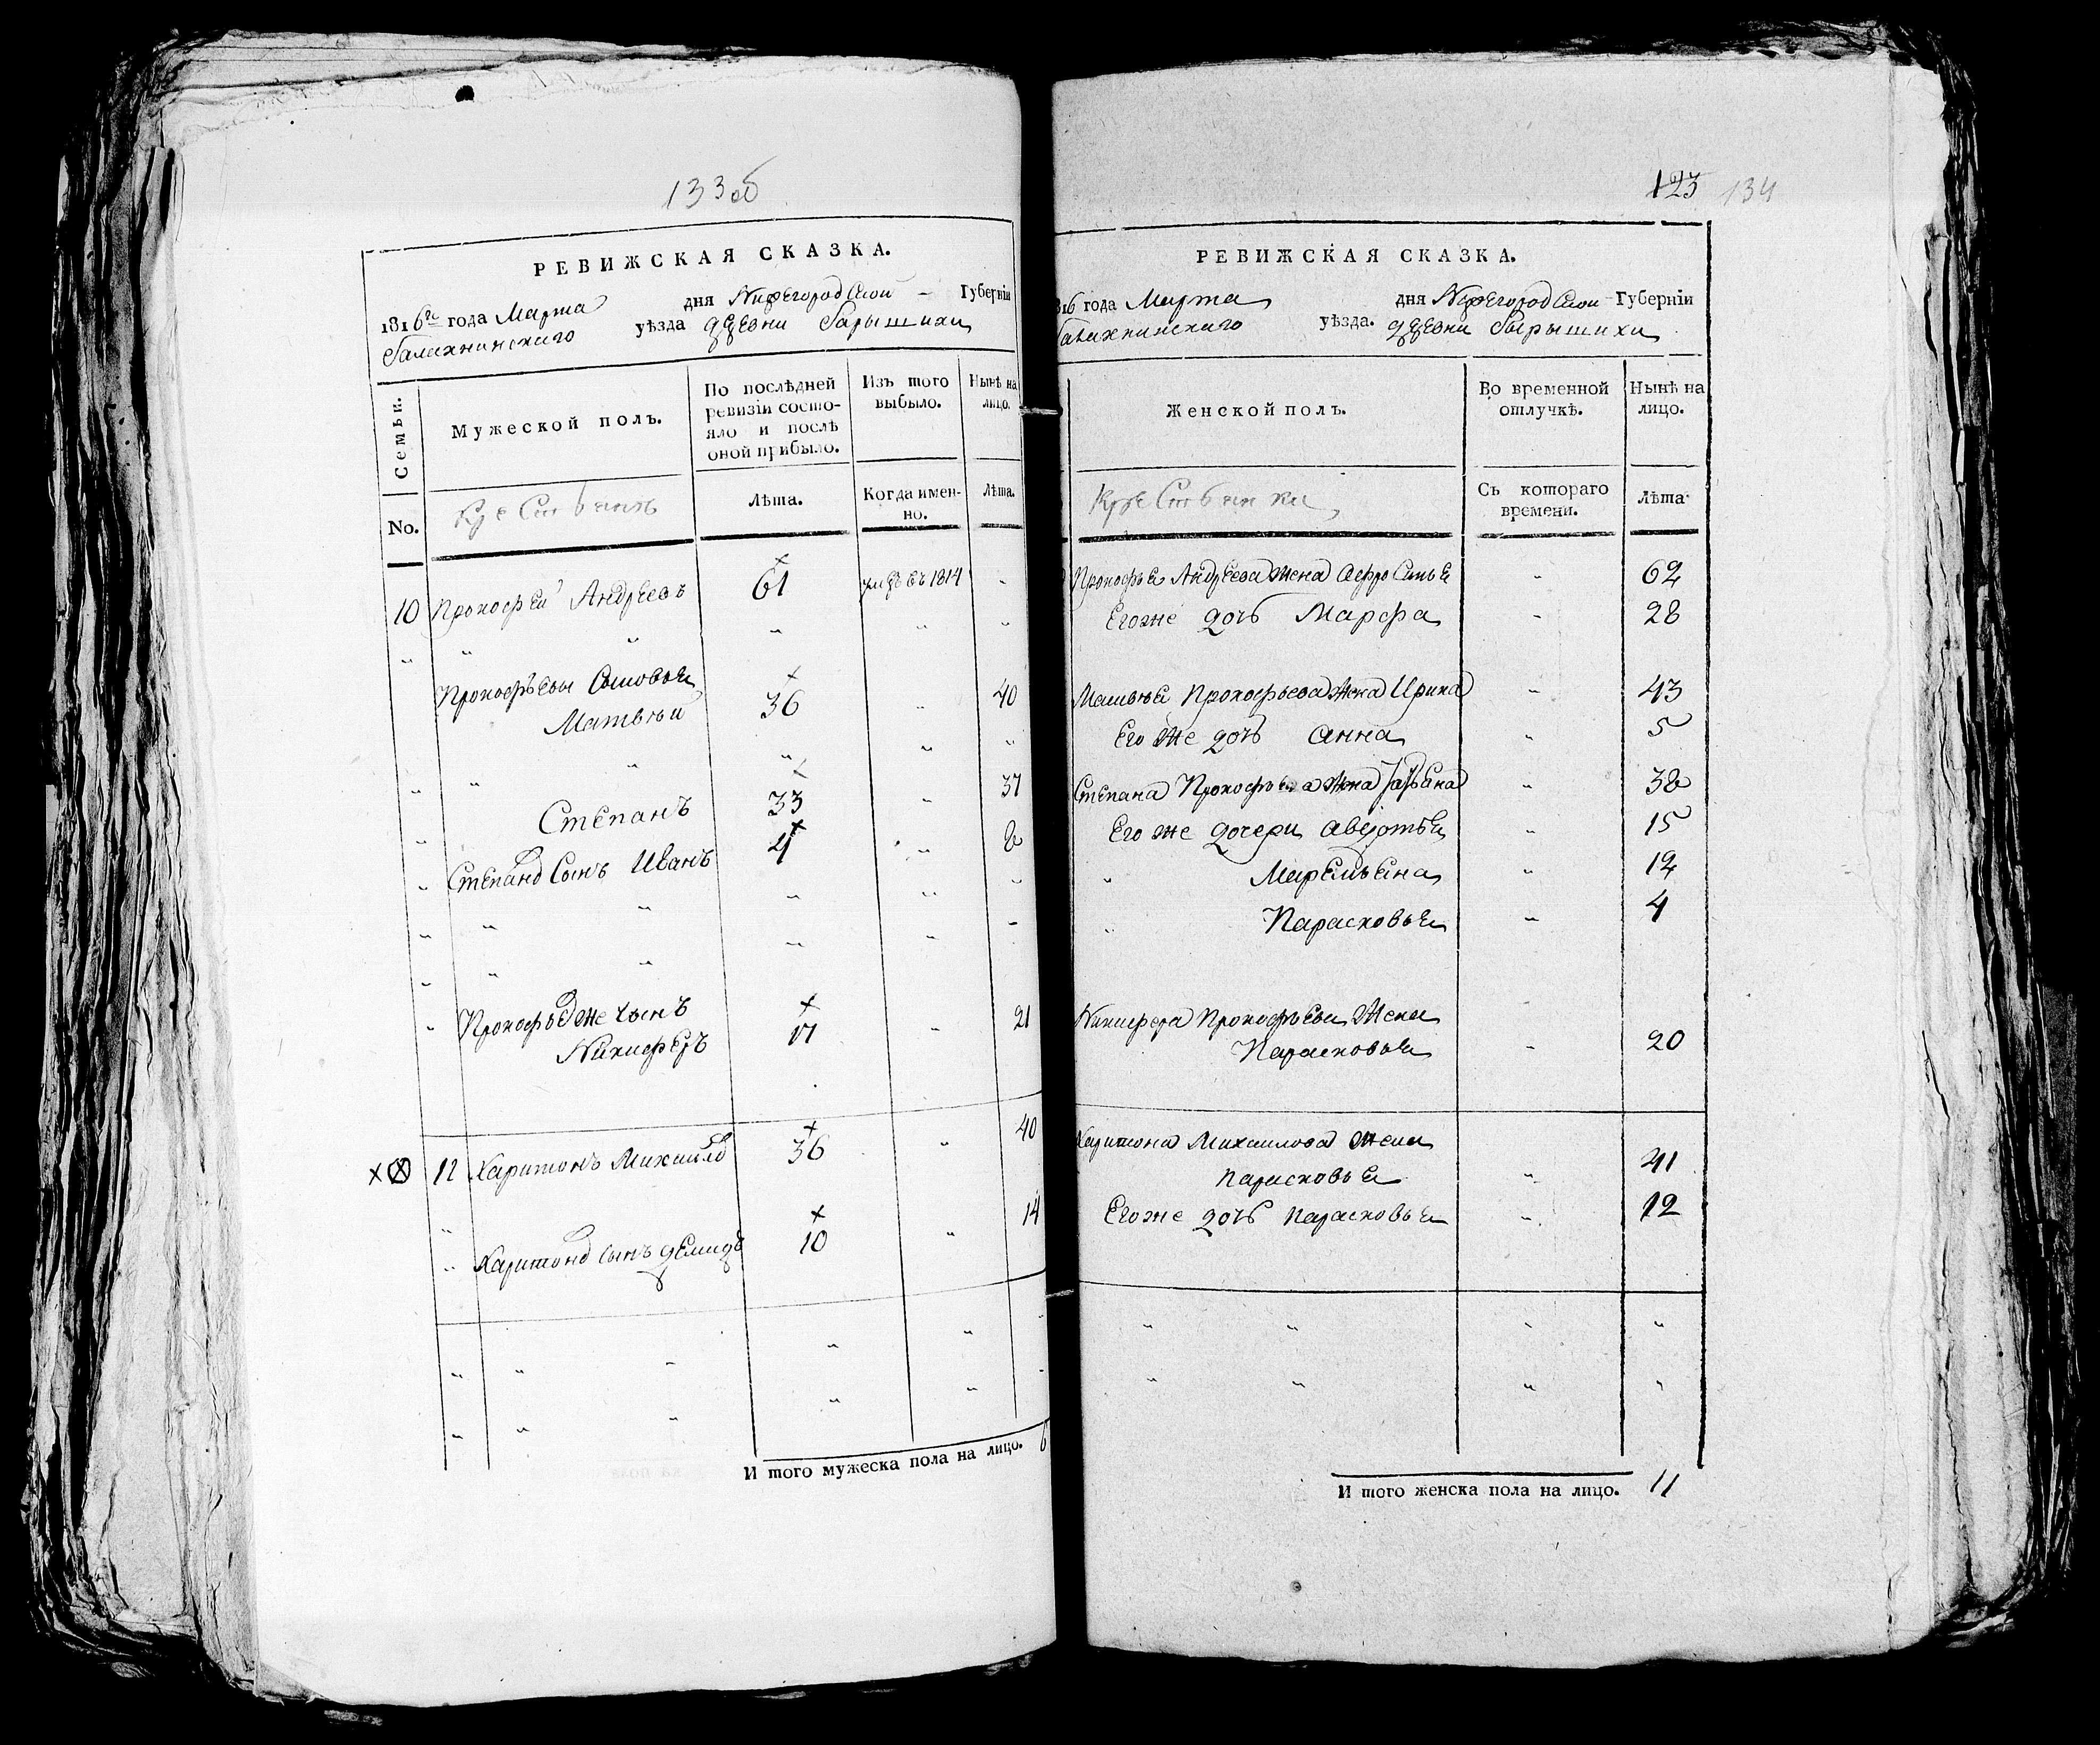 133 об
РЕВИЖСКАЯ СКАЗКА.
1816го года Марта дня Нижегородской – Губерніи
балахнинскаго уѣзда дрѣвни барышихи
Семьи.
Мужеской полъ.
По послѣдней ревизіи состо-
яло и послѣ
оной прибыло.
Изъ того
выбыло.
Нынѣ на
лицо.
No.
Крестьянъ
Лѣта.
Когда имен-
но.
Лѣта.
10 Прокофѣй Андреевъ 61 умре въ 1814 -
Прокофьевы Сыновья
Матвѣй 36 40
Степанъ 33 37
Степано Сынъ Иванъ 4 8
Прокофье же сынъ
Никифоръ 17 21
12 Харитонъ Михаило въ 36 40
Харитоно сынъ демидъ 10 14
И того мужеска пола на лицо. 6
123 134
РЕВИЖСКАЯ СКАЗКА.
816 года Марта дня Нижегородской Губерніи
балахнинскаго уѣзда. дрѣвни барышихи
Женской полъ.
Во временной
отлучкѣ.
Нынѣ на
лицо.
Крестьянки
Съ котораго
времени.
Лѣта.
Прокофья Андреева жена Афросинья - 62
Егоже дочь Марфа - 28
Матвѣя Прокофьева жена Ирина 43
Его же дочь Анна 5
Степана Прокофьева жена Татьяна 38
Его же дочери авдотья 15
Маремьяна 12
Парасковья 4
Никифора Прокофьева Жена
Парасковья - 20
Харитона Михаилова жена
парасковья 41
Егоже дочь парасковья 12
И того женска пола на лицо. 11